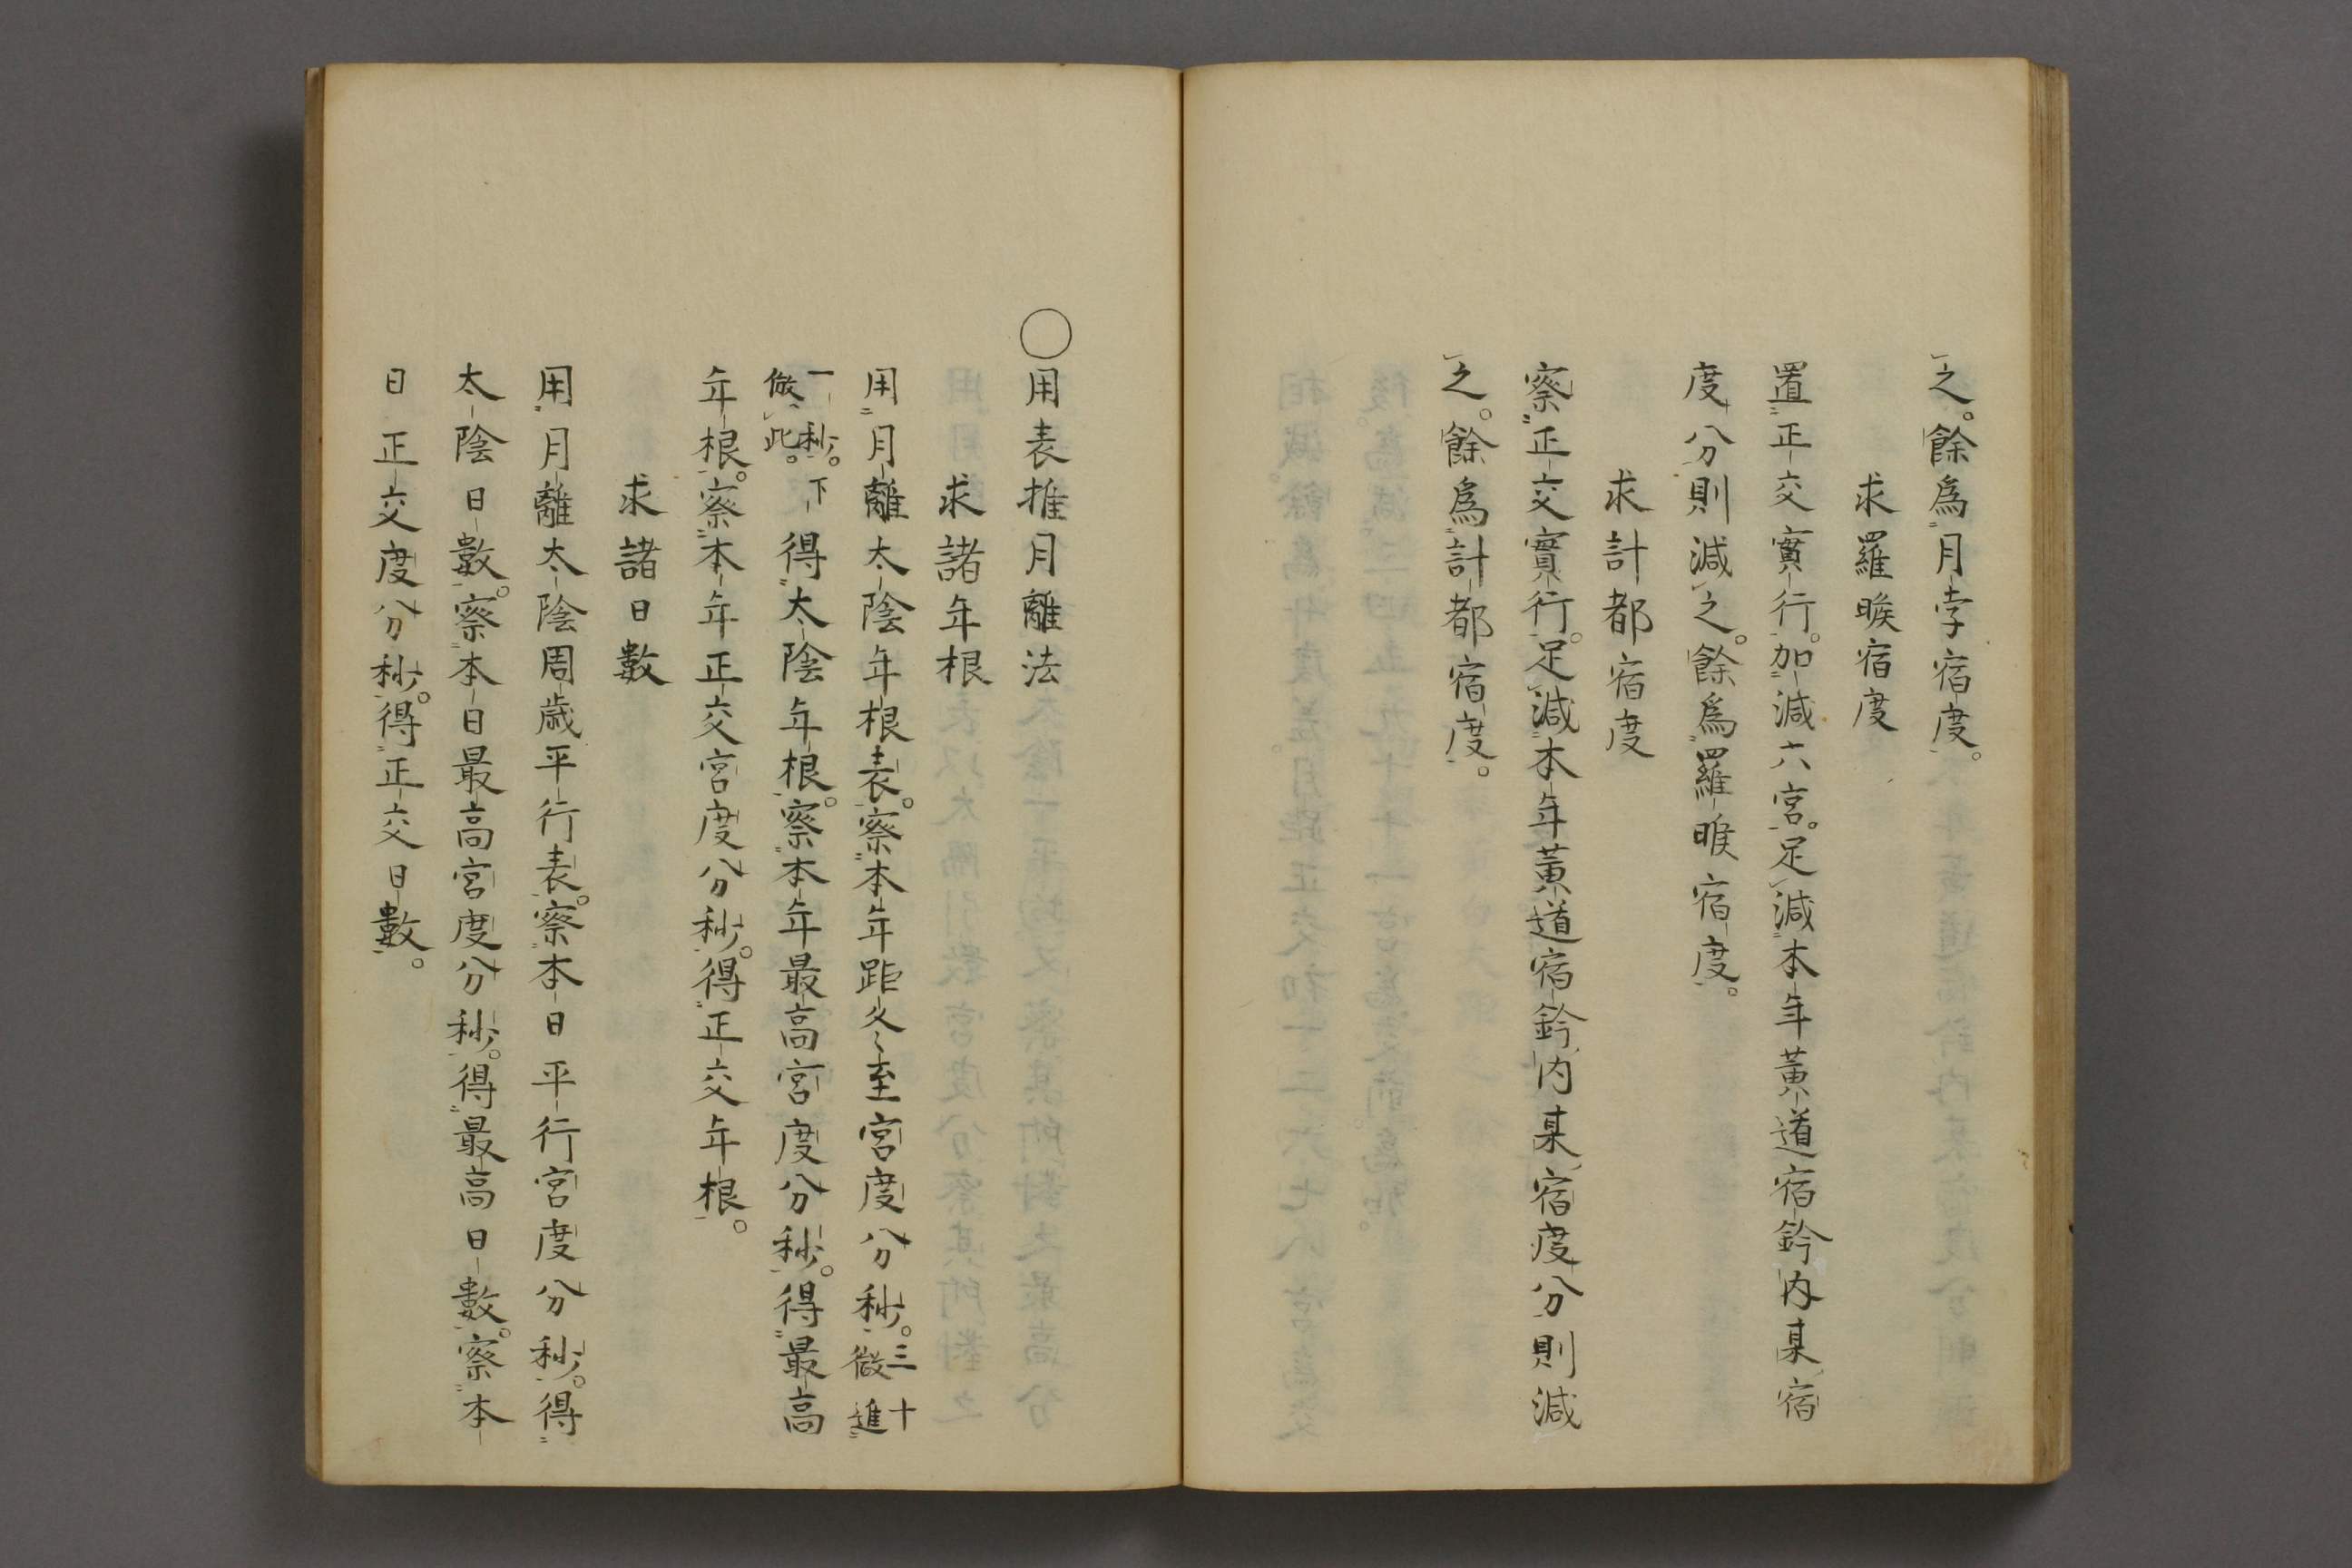 之。餘為月孛宿度。
求羅睺宿度
置正交實行。加減六宮。足減本年黃道宿鈐内某宿
度分則減之。餘爲羅睺宿度。
求計都宿度
察正交實行。足減本年黃道宿鈐内某宿度分則減
之。餘爲計都宿度。
○用表推月離法
求諸年根
用月離太陰年根表。察本年距冬至宮度分秒。三十微進
一秒。下倣此。得太陰年根。察本年最高宮度分秒。得最高
年根。察本年正交宮度分秒。得正交年根。
求諸日數
用月離太陰周歳平行表。察本日平行宮度分秒。得
太陰日數。察本日最高宮度分秒。得最高日數。察本
日正交度分秒。得正交日數。